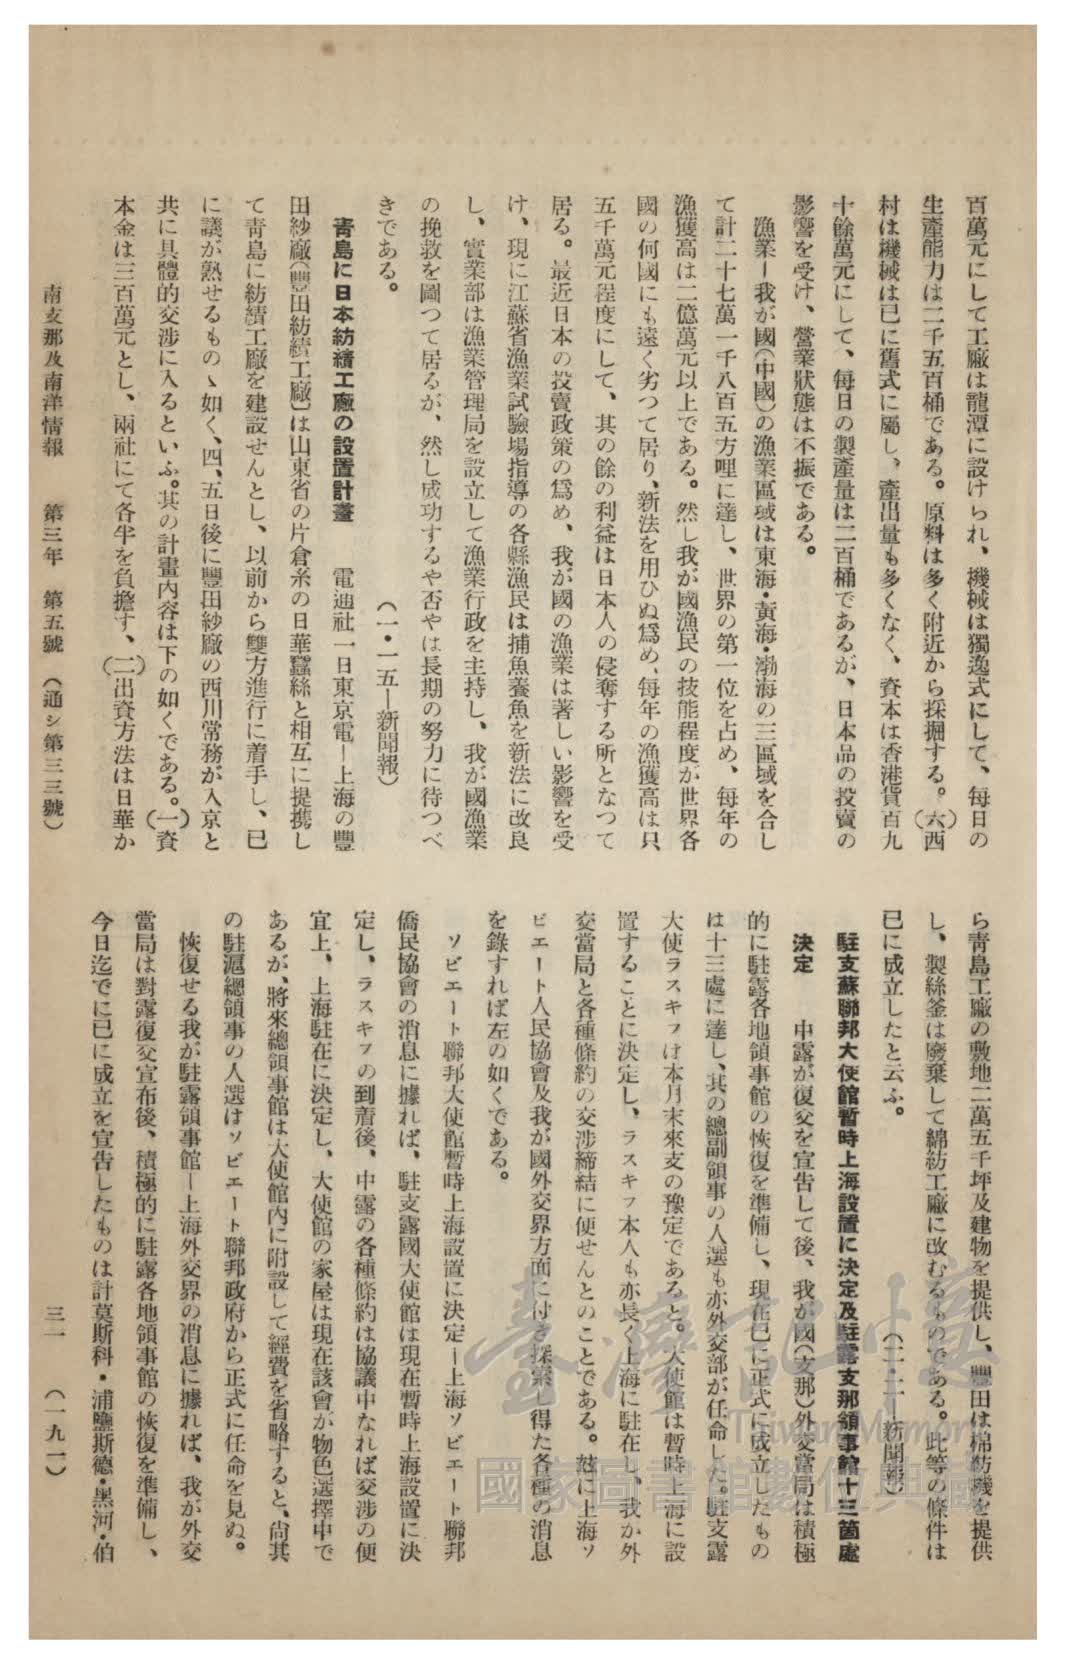 百萬元にして工廠は龍潭に設けられ、機械は獨逸式にして、每日の
生產能力は二千五百桶である。原料は多く附近から採掘する。(六)西
村は機械は已に舊式に屬し、產出量も多くなく、資本は香港貨百九
十餘萬元にして、每日の製產量は二百桶であるが、日本品の投賣の
影響を受け、營業狀態は不振である。
漁業ー我が國(中國)の漁業區域は東海・黃海・渤海の三區域を合し
て計二十七萬一千八百五方哩に達し、世界の第一位を占め、每年の
漁獲高は二億萬元以上である。然し我が國漁民の技能程度が世界各
國の何國にも遠く劣つて居り、新法を用ひぬ爲め、每年の漁獲高は只
五千萬元程度にして、其の餘の利益は日本人の侵奪する所となつて
居る。最近日本の投賣政策の爲め、我が國の漁業は著しい影響を受
け、現に江蘇省漁業試驗場指導の各縣漁民は捕魚養魚を新法に改良
し、實業部は漁業管理局を設立して漁業行政を主持し、我が國漁業
の挽救を圖つて居るが、然し成功するや否やは長期の努力に待つべ
きである。
(一・一五ー新聞報)
靑島に日本紡績工廠の設置計畫　電通社一日東京電ー上海の豐
田紗廠(豐田紡績工廠)は山東省の片倉糸の日華蠶絲と相互に提携し
て靑島に紡績工廠を建設せんとし、以前から雙方進行に着手し、已
に議が熟せるものゝ如く、四、五日後に豐田紗廠の西川常務が入京と
共に具體的交涉に入るといふ。其の計畫內容は下の如くである。(一)資
本金は三百萬元とし、兩社にて各半を負擔す、(二)出資方法は日華か
ら靑島工廠の敷地二萬五千坪及建物を提供し、豐田は棉紡機を提供
し、製絲釜は廢棄して綿紡工廠に改むるものである。此等の條件は
已に成立したと云ふ。
(二・二ー新聞報)
駐支蘇聯邦大使館暫時上海設置に決定及駐露支那領事館十三箇處
決定　中露が復交を宣告して後、我が國(支那)外交當局は積極
的に駐露各地領事館の恢復を準備し、現在已に正式に成立したもの
は十三處に達し、其の總副領事の人選も亦外交部が任命した。駐支露
大使ラスキフは本月末來支の豫定であると。大使館は暫時上海に設
置することに決定し、ラスキフ本人も亦長く上海に駐在し、我が外
交當局と各種條約の交涉締結に便せんとのことである。玆に上海ソ
ビエート人民協會及我が國外交界方面に付き探索し得た各種の消息
を錄すれば左の如くである。
ソビエート聯邦大使館暫時上海設置に決定ー上海ソビエート聯邦
僑民協會の消息に據れば、駐支露國大使館は現在暫時上海設置に決
定し、ラスキフの到着後、中露の各種條約は協議中なれば交涉の便
宜上、上海駐在に決定し、大使館の家屋は現在該會が物色選擇中で
あるが、將來總領事館は大使館內に附設して經費を省略すると、尙其
の駐滬總領事の人選はソビエート聯邦政府から正式に任命を見ぬ。
恢復せる我が駐露領事館ー上海外交界の消息に據れば、我が外交
當局は對露復交宣布後、積極的に駐露各地領事館の恢復を準備し、
今日迄でに已に成立を宣告したものは計莫斯科・浦鹽斯德・黑河・伯
南支那及南洋情報　第三年　第五號　(通シ第三三號)　三一　(一九一)
臺灣記憶
Taiwan Memory
國家圖書館數位典藏